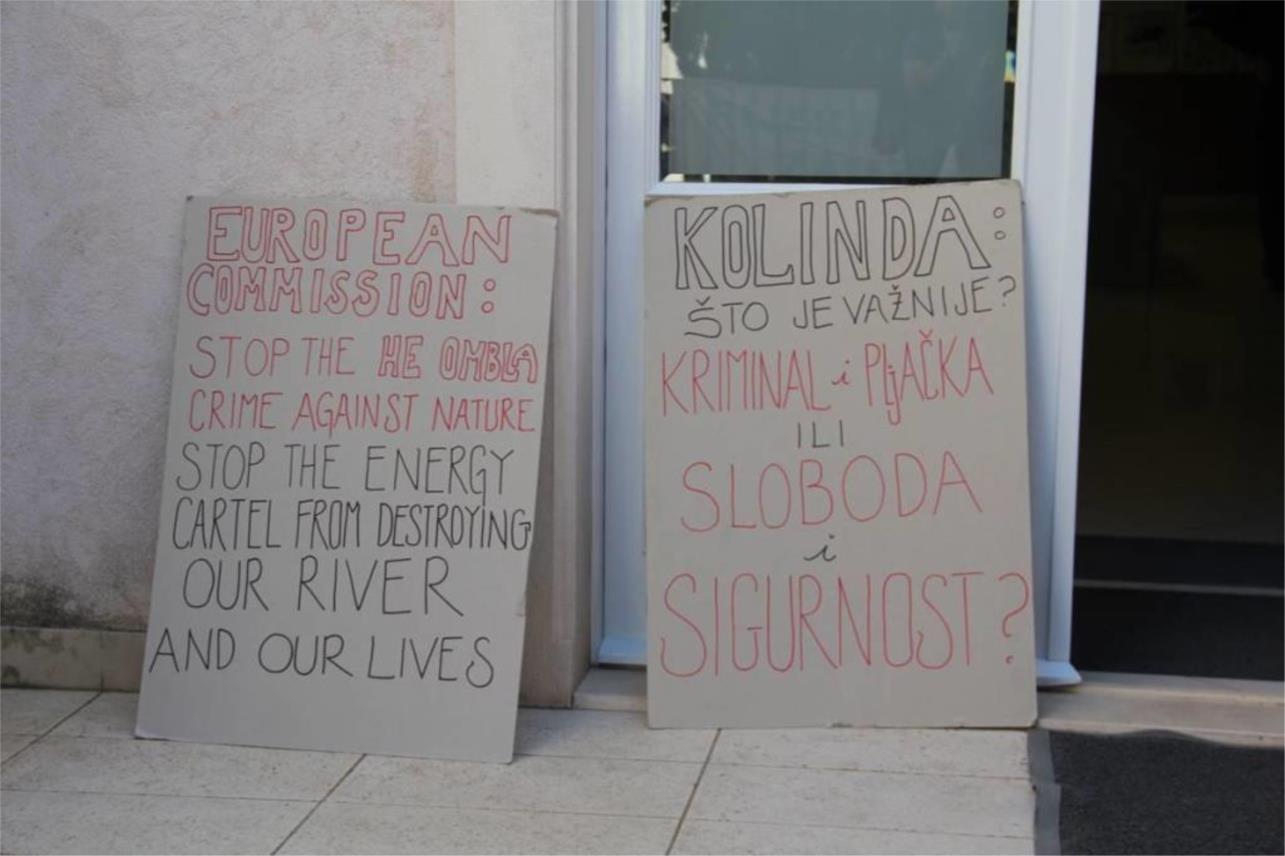 EUROPEAN
COMMISSION:
STOP THE HE OMBLA
CRIME AGAINST NATURE
STOP THE ENERGY
CARTEL FROM DESTROYING
OUR RIVER
AND OUR LIVES
KOLINDA:
ŠTO JE VAŽNIJE?
KRIMINAL i PljAČKA
ILI
SLOBODA
i
SIGURNOST?